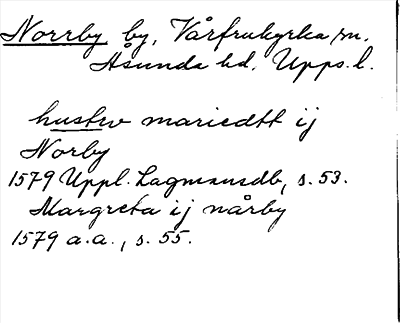 Norrby by, Vårfrukyrka sn.
Åsunda hd. Upps. l.
hustrv mariedtt ij
Norby
1579 Uppl. Lagmansdb, s. 53.
Margreta ij nårby
1579 a.a., s. 55.